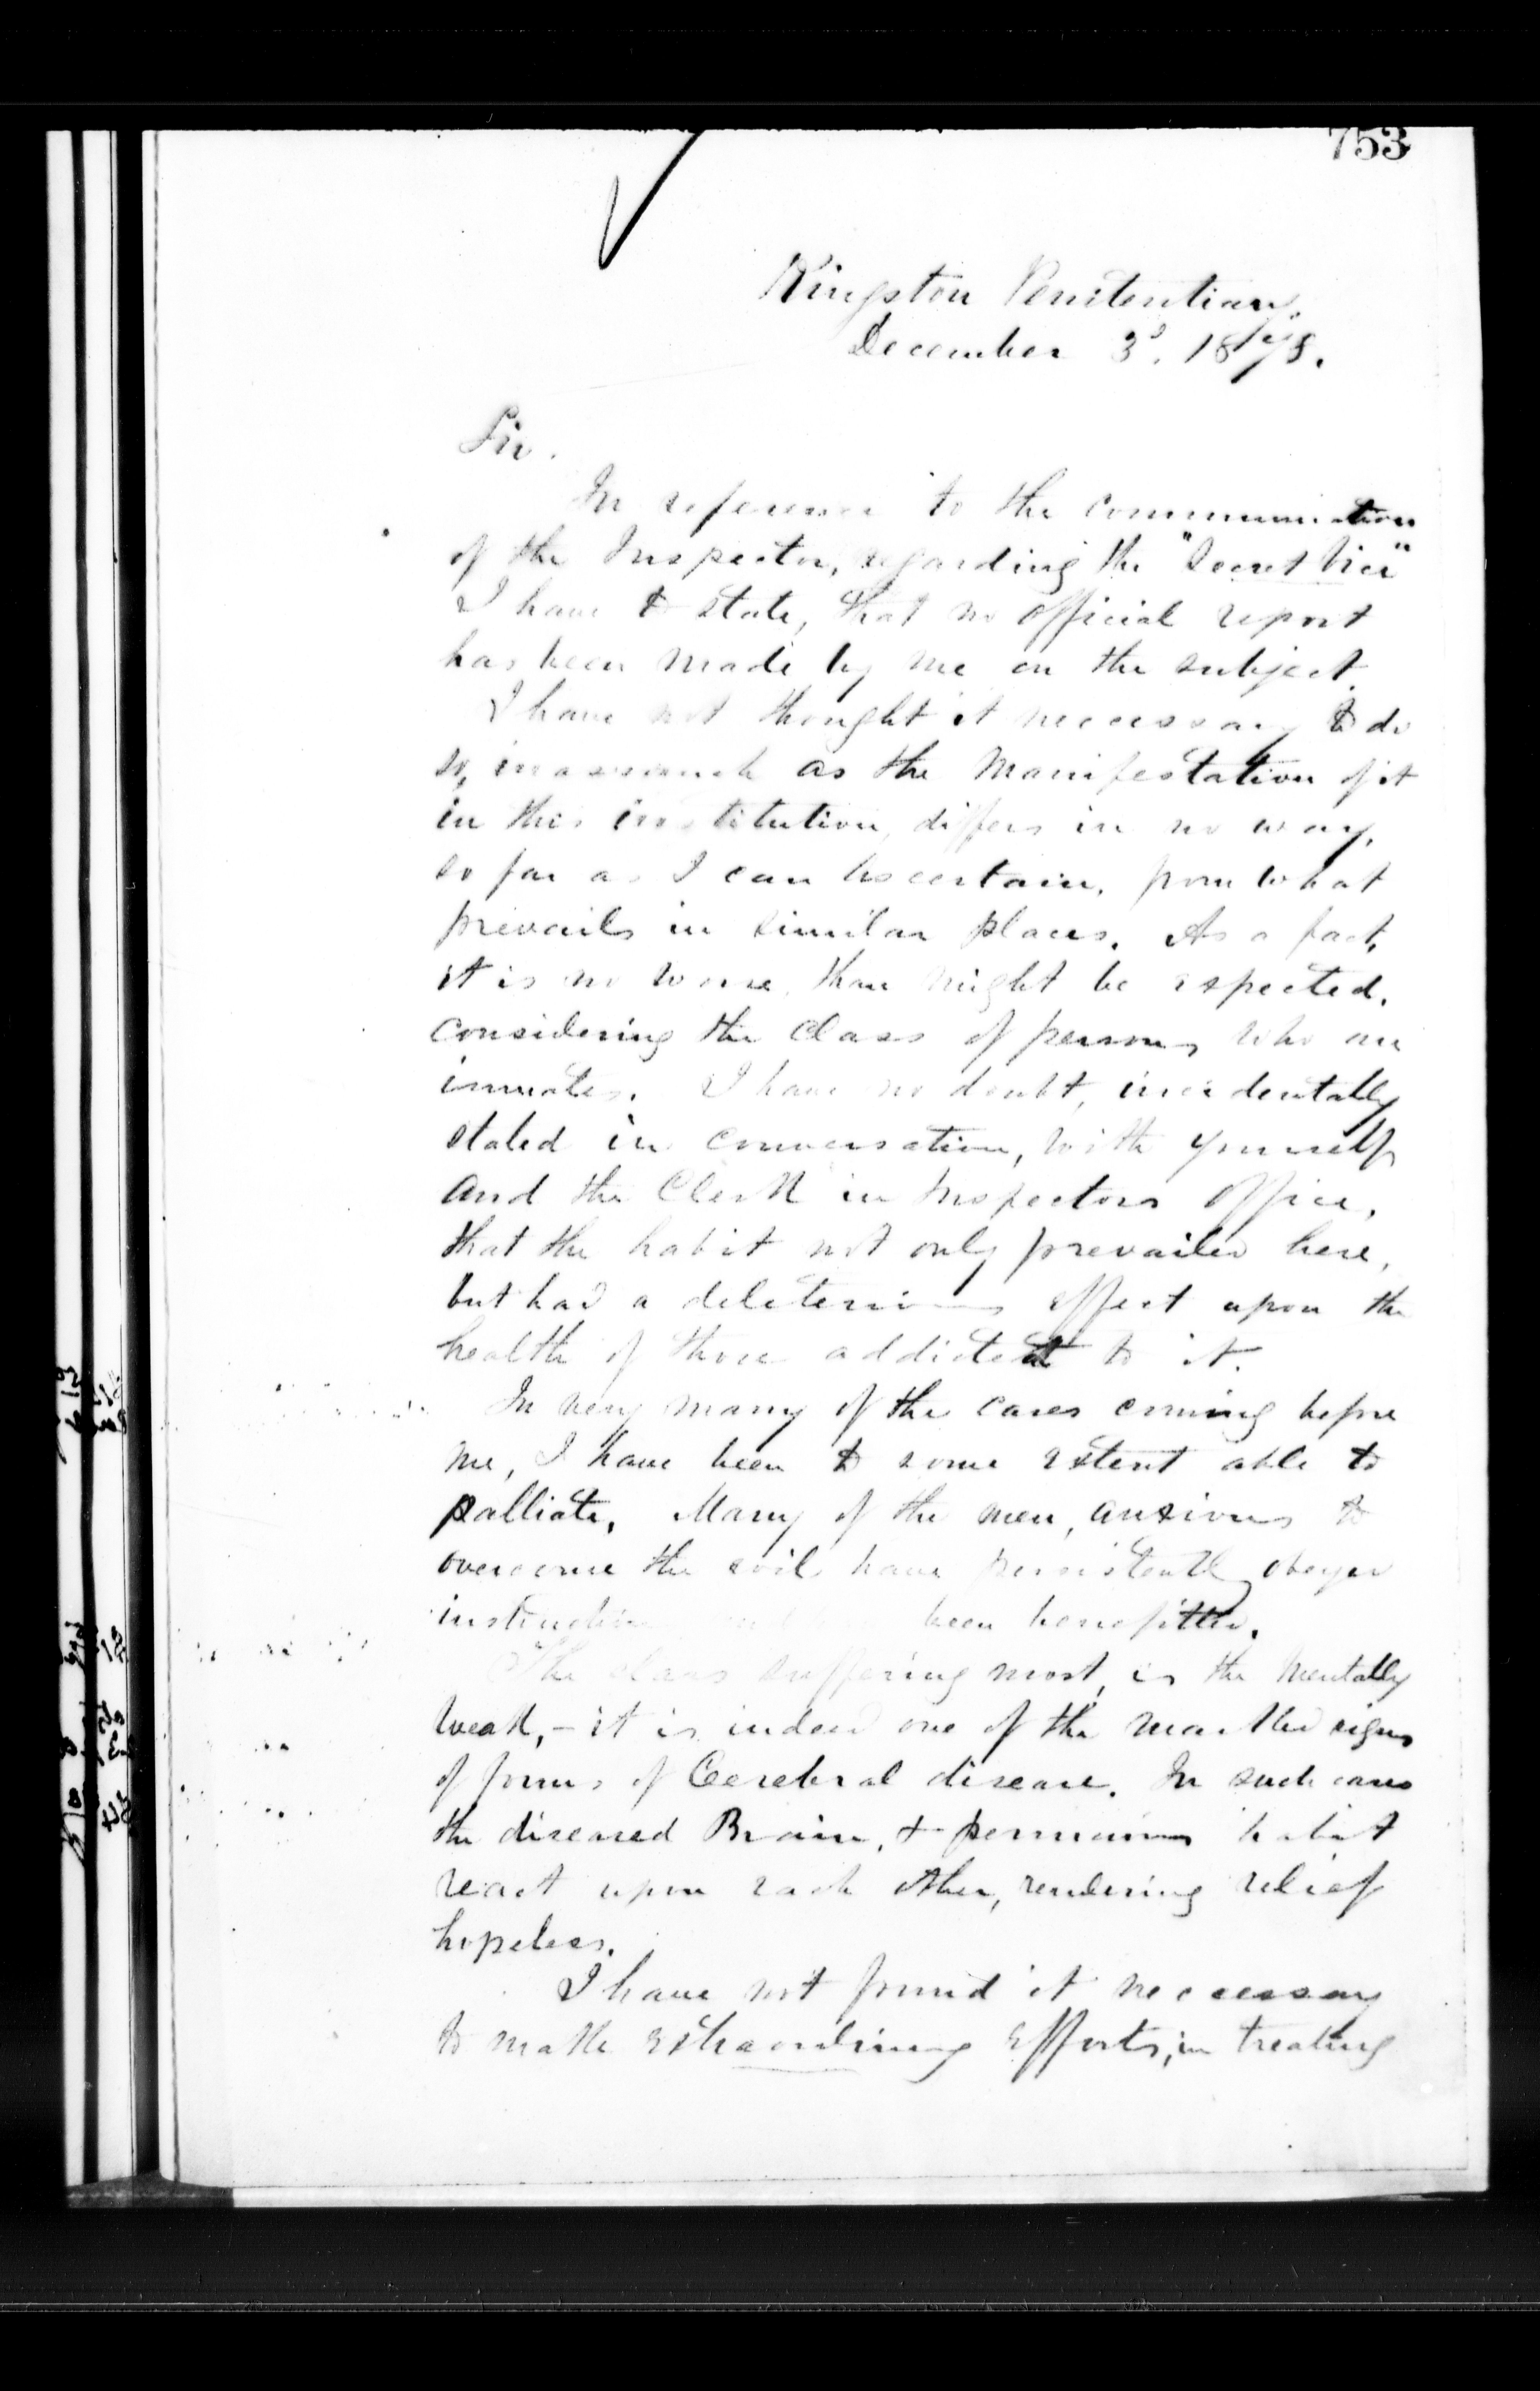 753
Kingston Penitentiary.
December 3d. 1878.
Sir.
In reference to the communication
of the Inspector, regarding the "Secret Vice"
I have to state, that no official report
has been made by me on the subject.
I have not thought it neccessary to do
so, inasmuch as the manifestation of it
in this institution, differs in no way,
so far as I can ascertain, from what
prevails in similar places. As a fact,
it is no worse, than might be expected,
considering the class of persons, who are
inmates. I have no doubt, incidentally
stated in conversation, with yourself
and the Clerk in Inspectors Office,
that the habit not only prevailed here,
but had a deleterious effect upon the
health of those addicted to it.
In very many of the cases coming before
me, I have been to some extent able to
palliate. Many of the men, anxious to
overcome the evil have persistently obeyed
instructions been benefitted.
The class suffering most, is the mentally
weak, - it is indeed one of the marked signs
of forms of Cerebral disease. In such cases
the diseased Brain, & pernicious habit
react upon each other, rendering relief
hopeless.
I have not found it neccessary
to make extraordinary efforts, in treating